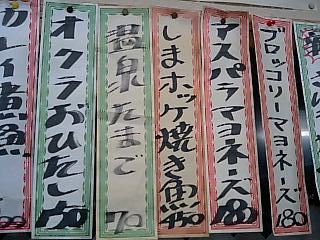 ブロッコリーマヨネーズ180
アスパラマヨネーズ180
しまホッケ焼き魚450
温泉たまご70
オクラおひたし150
カレイ煮魚